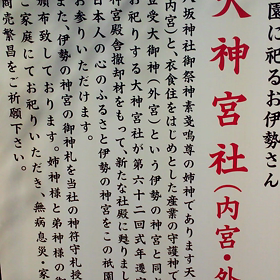 園に祀るお伊勢さん
大神宮社(内宮・外
八坂神社御祭神素戔嗚尊の姉神であります天
(内宮)と、衣食住をはじめとした産業の守護神で
豊受大御神(外宮)という伊勢の神宮と同
お祀りする大神宮社が第六十二回式年遷
神宮殿舎撤却材をもって、新たな社殿に甦りまし
日本人の心のふるさと伊勢の神宮をこの祇園
お参りいただけます。
また、伊勢の神宮の御神札を当社の神符守札授
頒布致しております。姉神様と弟神様の御
ご家庭にてお祀りいただき、無病息災・家
商売繁昌をご祈願下さい。